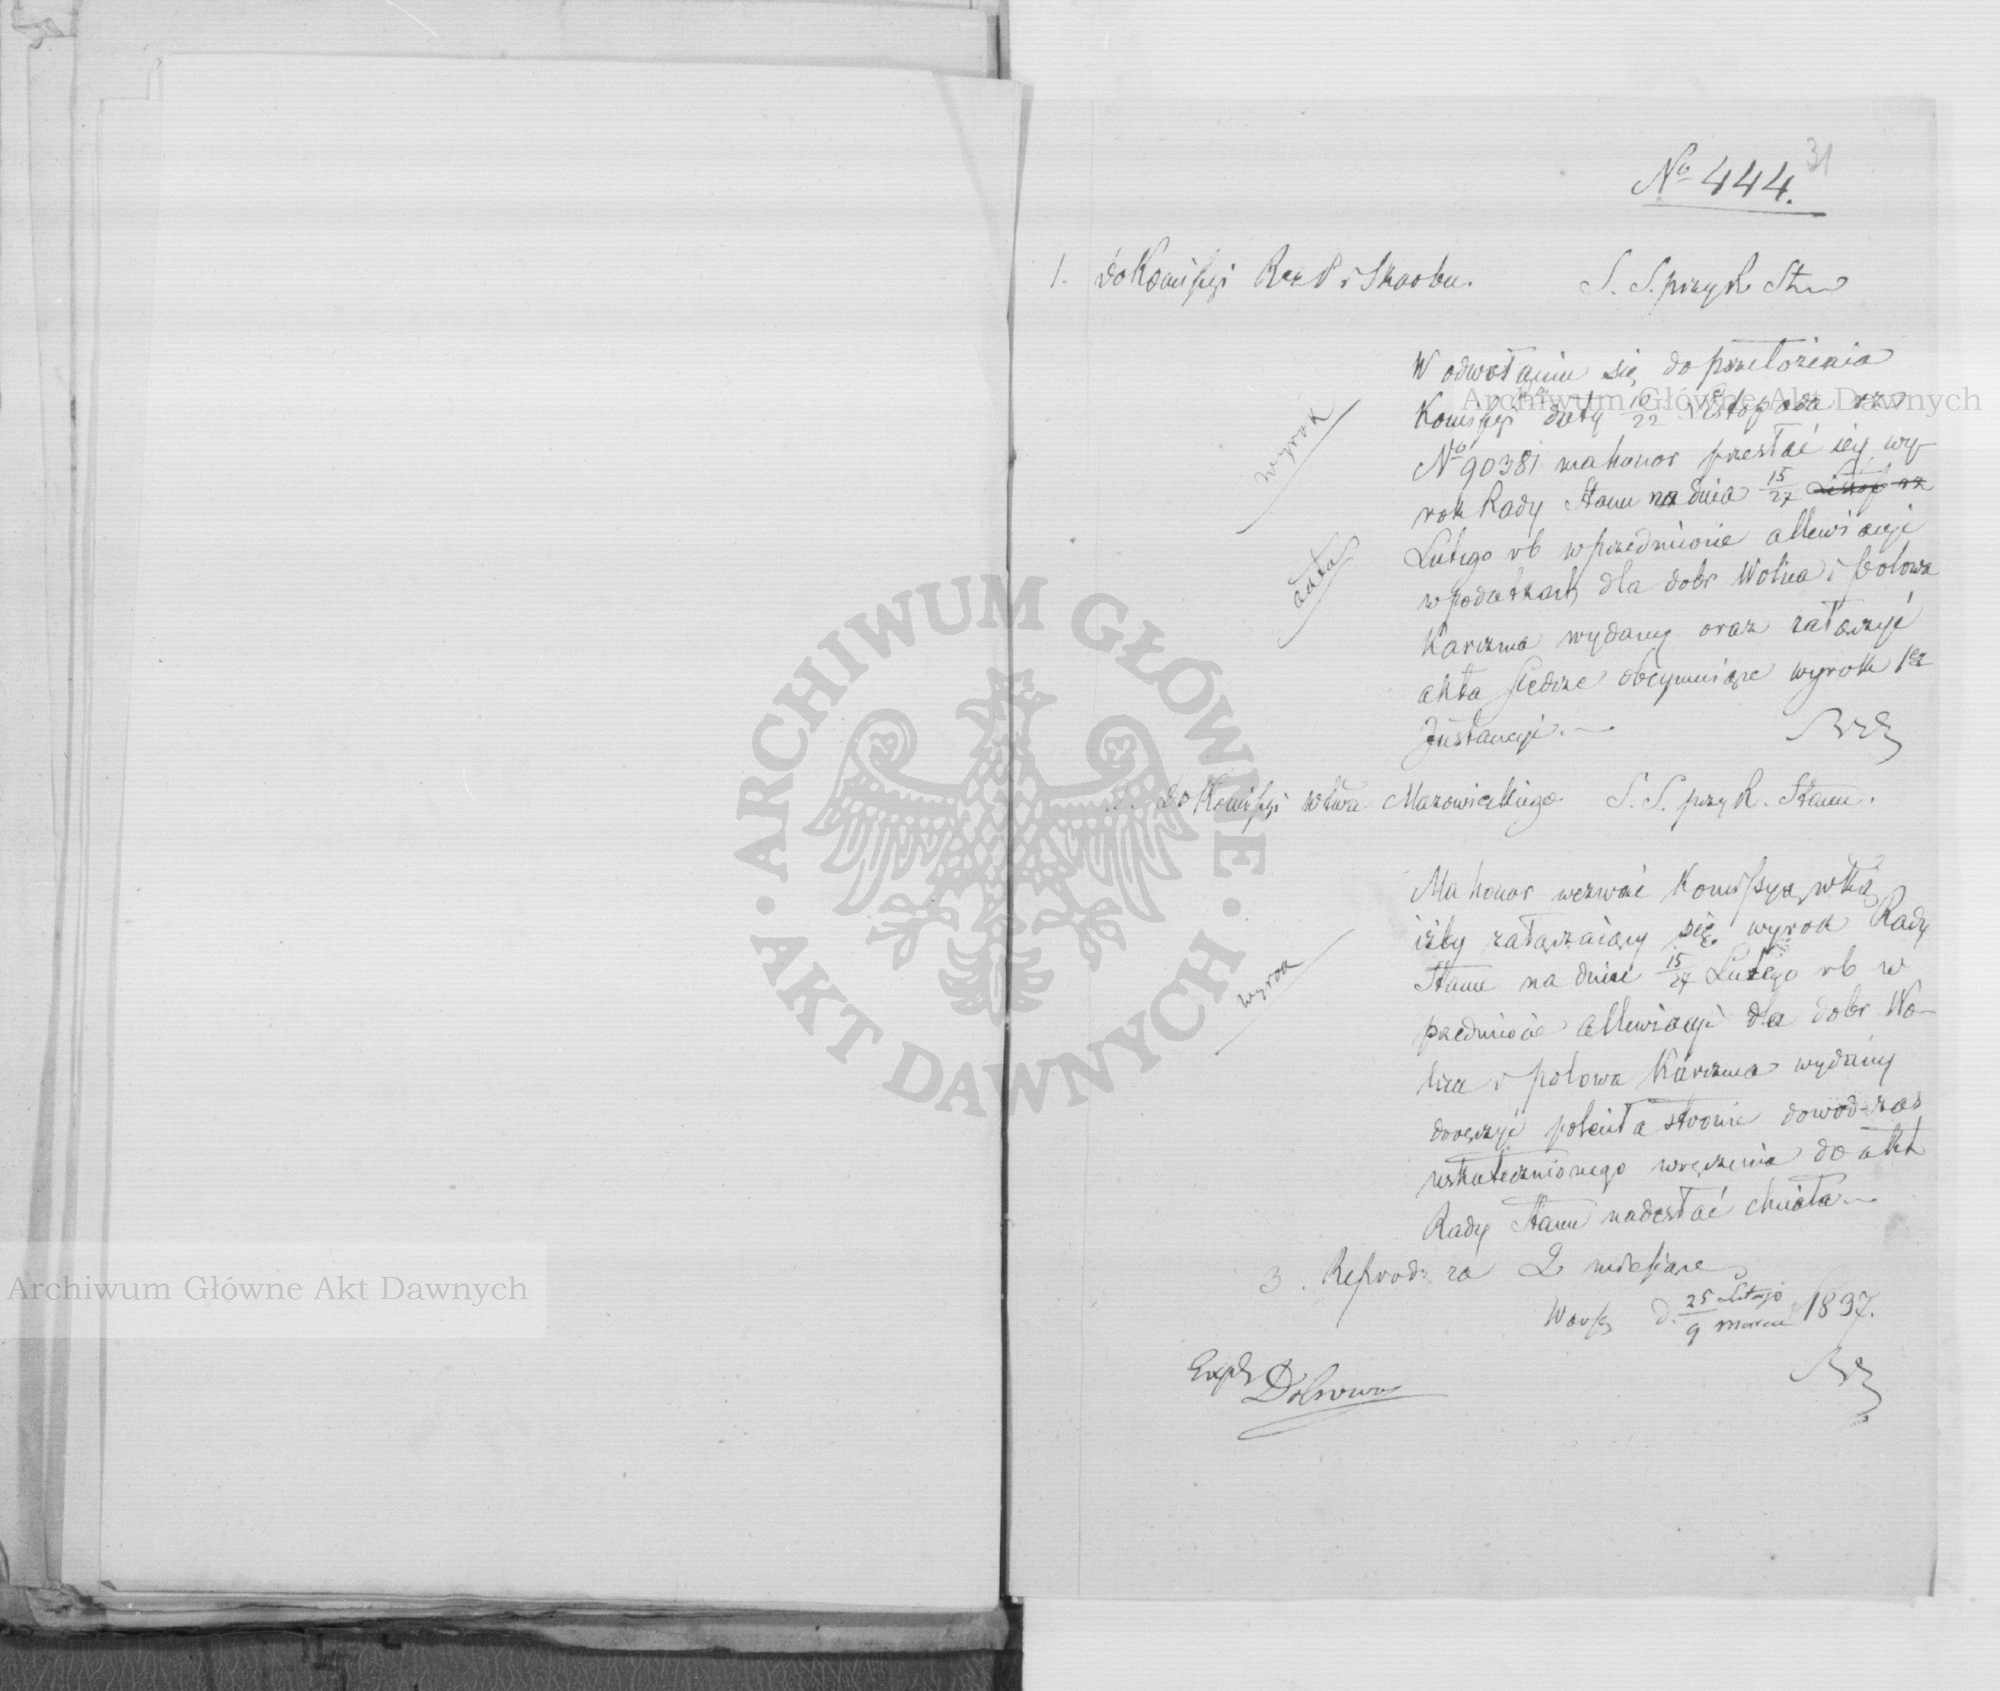 31
No 444.
1. Do Komissyi Rz. P i Skarbu. S. S. przy R. Stu
W odwołaniu się do przełożenia
Komissyi daty 10/22 Listopada rz
No 90381 ma honor przesłać jéy wy-
wyrok
rok Rady Stanu na dniu 15/27 Listop rz
Lutego rb w przedmiocie allewiacyi
akta
w podatkach dla dobr Wolica i połowa
Karczma wydany oraz załączyć
akta Sędzie obeymuiące wyrok 1éz
Instancyi.
2. Do Komissyi Wtwa Mazowieckiego S. S. przy R. Stanu.
Ma honor wezwać Komissyą Wtką
iżby załączaiący się wyrok Rady
wyrok
Stanu na dniu 15/27 Lutego rb w
przedmiocie allewiacyi dla dobr Wo-
lica i połowa Karczma wydany
doręczyć poleciła stronie dowod zaś
uskutecznionego wręczenia do akt
Rady Stanu nadesłać chciała
3. Reprod: za 2 miesiące
Warsz d. 25 Lutego/9 Marca 1837.
Exp
Archiwum Główne Akt Dawnych
Archiwum Główne Akt Dawnych
ARCHIWUM GŁÓWNE · AKT DAWNYCH ·